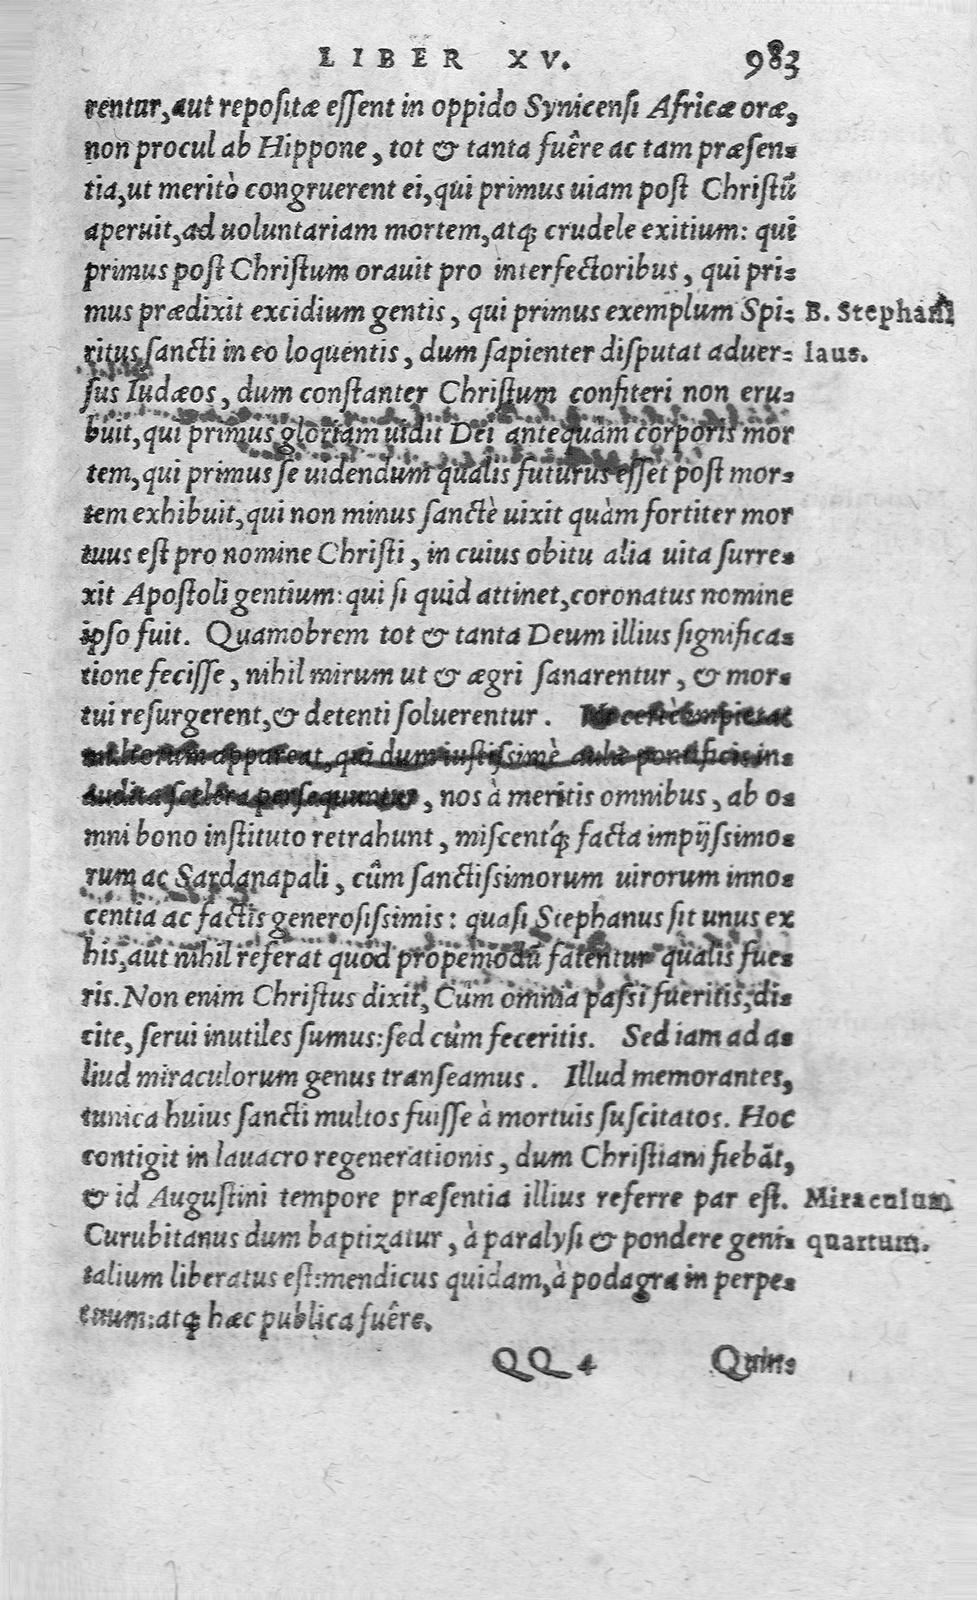 LIBER XV. 983
rentur, aut repositæ essent in oppido Synicensi Africæ oræ,
non procul ab Hippone, tot & tanta fuêre ac tam præsen-
tia, ut meritò congruerent ei, qui primus uiam post Christũ
aperuit, ad uoluntariam mortem, atq; crudele exitium: qui
primus post Christum orauit pro interfectoribus, qui pri-
mus prædixit excidium gentis, qui primus exemplum Spi-
B. Stephani
ritus sancti in eo loquentis, dum sapienter disputat aduer-
laus.
sus Iudæos, dum constanter Christum confiteri non eru-
buit, qui primus gloriam uidit Dei antequàm corporis mor
tem, qui primus se uidendum qualis futurus esset post mor-
tem exhibuit, qui non minus sanctè uixit quàm fortiter mor
tuus est pro nomine Christi, in cuius obitu alia uita surre-
xit Apostoli gentium: qui si quid attinet, coronatus nomine
ipso fuit. Quamobrem tot & tanta Deum illius significa-
tione fecisse, nihil mirum ut & ægri sanarentur, & mor-
tui resurgerent, & detenti soluerentur. impietat
multorum appareat, qui dum iustissimè aulæ pontificis in-
audita scelera persequuntur, nos à meritis omnibus, ab o-
mni bono instituto retrahunt, miscentq́; facta impijssimo-
rum ac Sardanapali, cûm sanctissimorum uirorum inno-
centia ac factis generosissimis: quasi Stephanus sit unus ex
his, aut nihil referat quod propemodũ fatentur qualis fue-
ris. Non enim Christus dixit, Cùm omnia passi fueritis, di-
cite, serui inutiles sumus: sed cùm feceritis. Sed iam ad a-
liud miraculorum genus transeamus. Illud memorantes,
tunica huius sancti multos fuisse à mortuis suscitatos. Hoc
contigit in lauacro regenerationis, dum Christiani fiebãt,
& id Augustini tempore præsentia illius referre par est.
Miraculum
Curubitanus dum baptizatur, à paralysi & pondere geni-
quartum.
talium liberatus est: mendicus quidam, à podagra in perpe-
tuum: atq; hæc publica fuêre.
QQ 4 Quin-